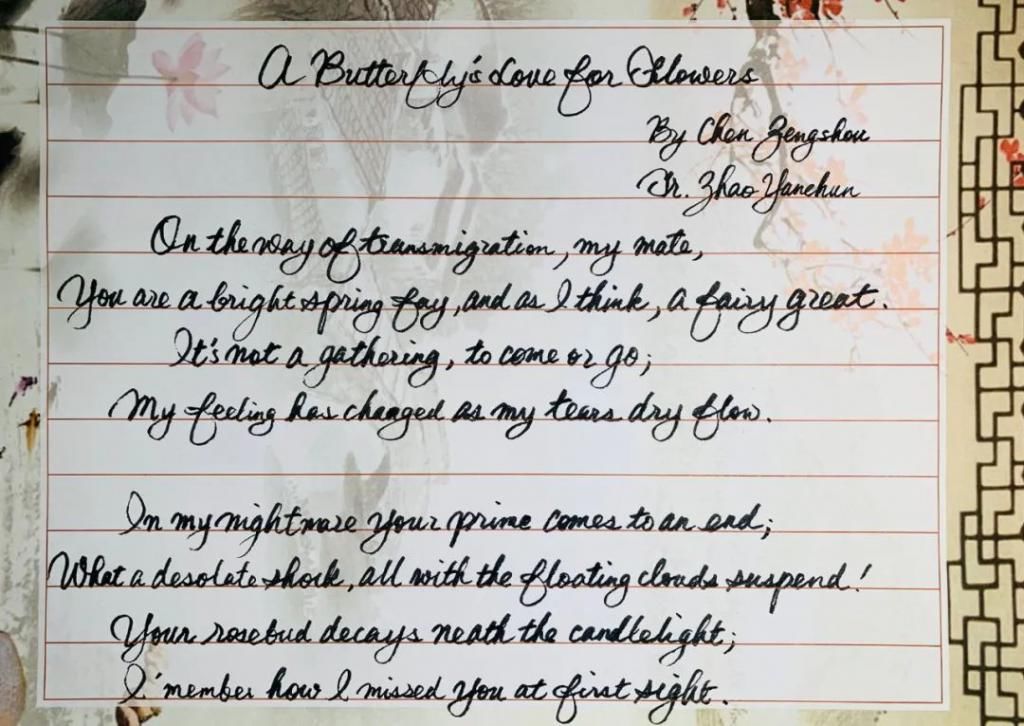 A Butterfly's Love for Flowers
By Chen Zengshou
Tr. Zhao Yanchun
On the way of transmigration, my mate,
You are a bright spring fay, and as I think, a fairy great.
It's not a gathering, to come or go;
My feeling has changed as my tears dry flow.
In my nightmare your prime comes to an end;
What a desolate shock, all with the floating clouds suspend!
Your rosebud decays neath the candlelight;
I 'member how I missed you at first sight.